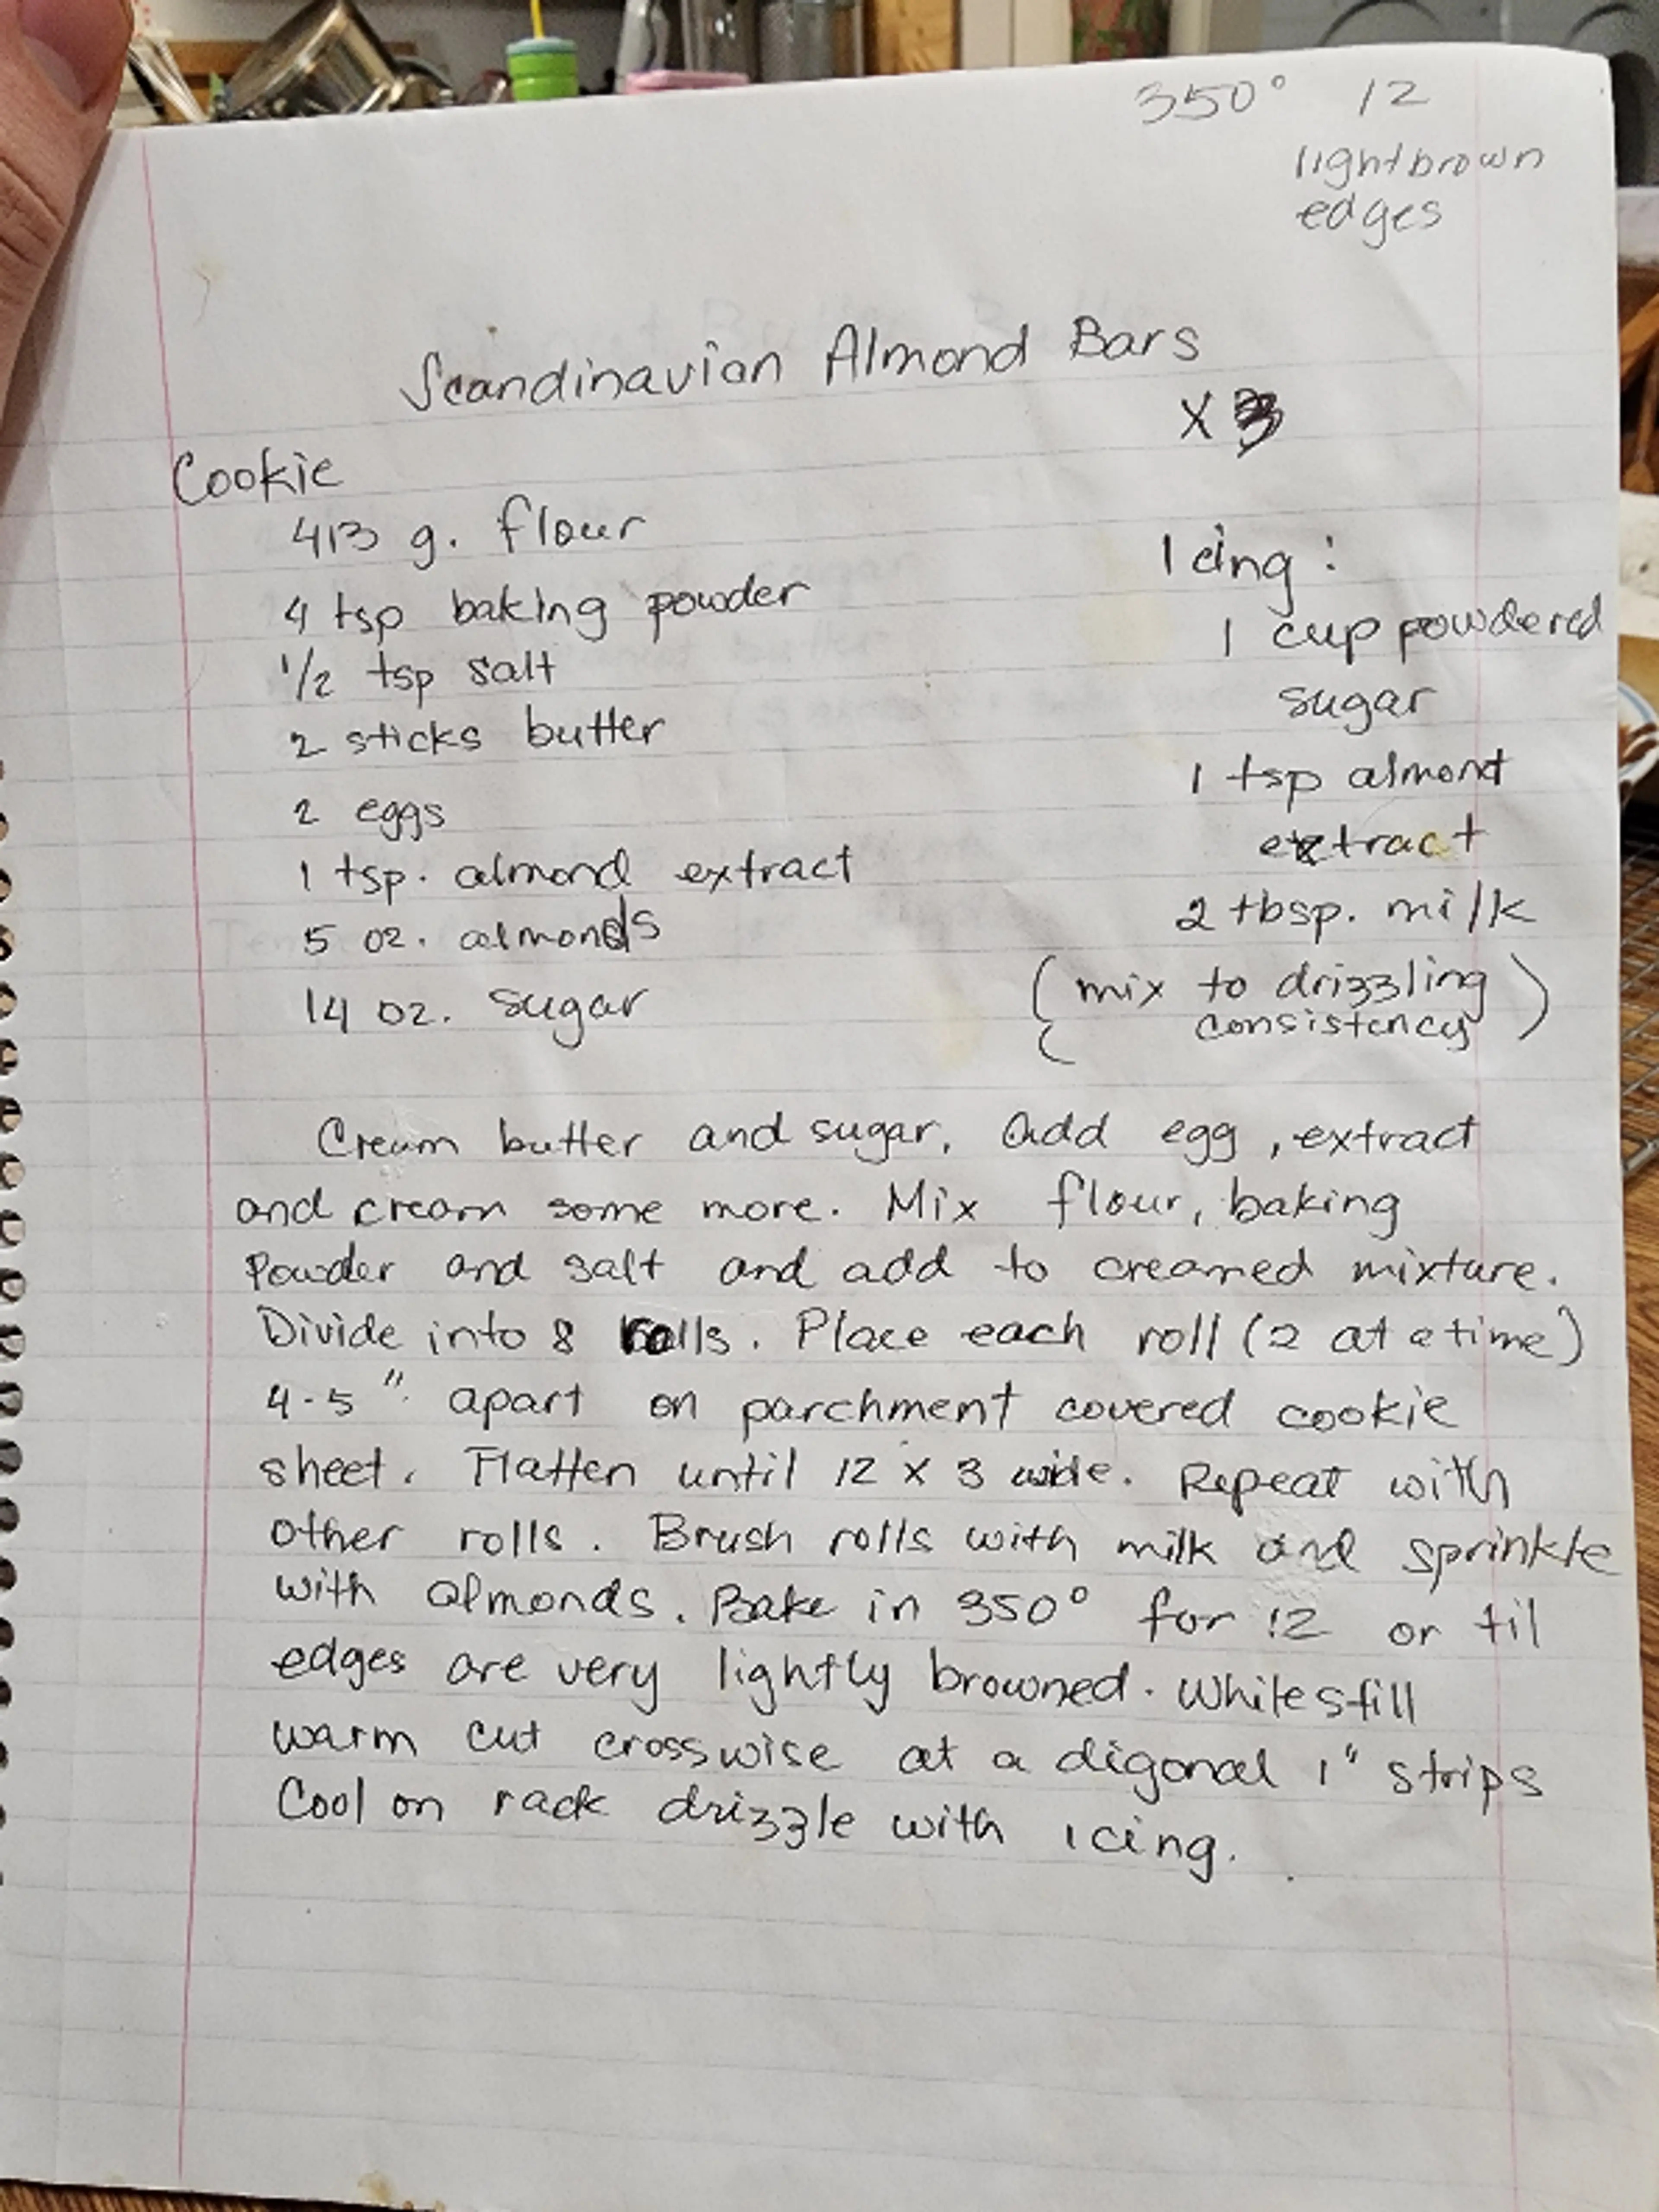 350° 12
lightbrown
edges
Scandinavian Almond Bars
x 3
Cookie
413 g. flour
4 tsp baking powder
1/2 tsp salt
2 sticks butter
2 eggs
1 tsp. almond extract
5 oz. almonds
14 oz. sugar
Icing:
1 cup powdered
sugar
1 tsp almont
extract
2 tbsp. milk
(mix to drizzling
consistency)
Cream butter and sugar, Add egg, extract
and cream some more. Mix flour, baking
Powder and salt and add to creamed mixture.
Divide into 8 rolls. Place each roll (2 at a time)
4-5" apart on parchment covered cookie
sheet. Flatten until 12 x 3 wide. Repeat with
other rolls. Brush rolls with milk and sprinkle
with almonds. Bake in 350° for 12 or til
edges are very lightly browned. While still
warm cut crosswise at a digonal 1" strips
Cool on rack drizzle with icing.